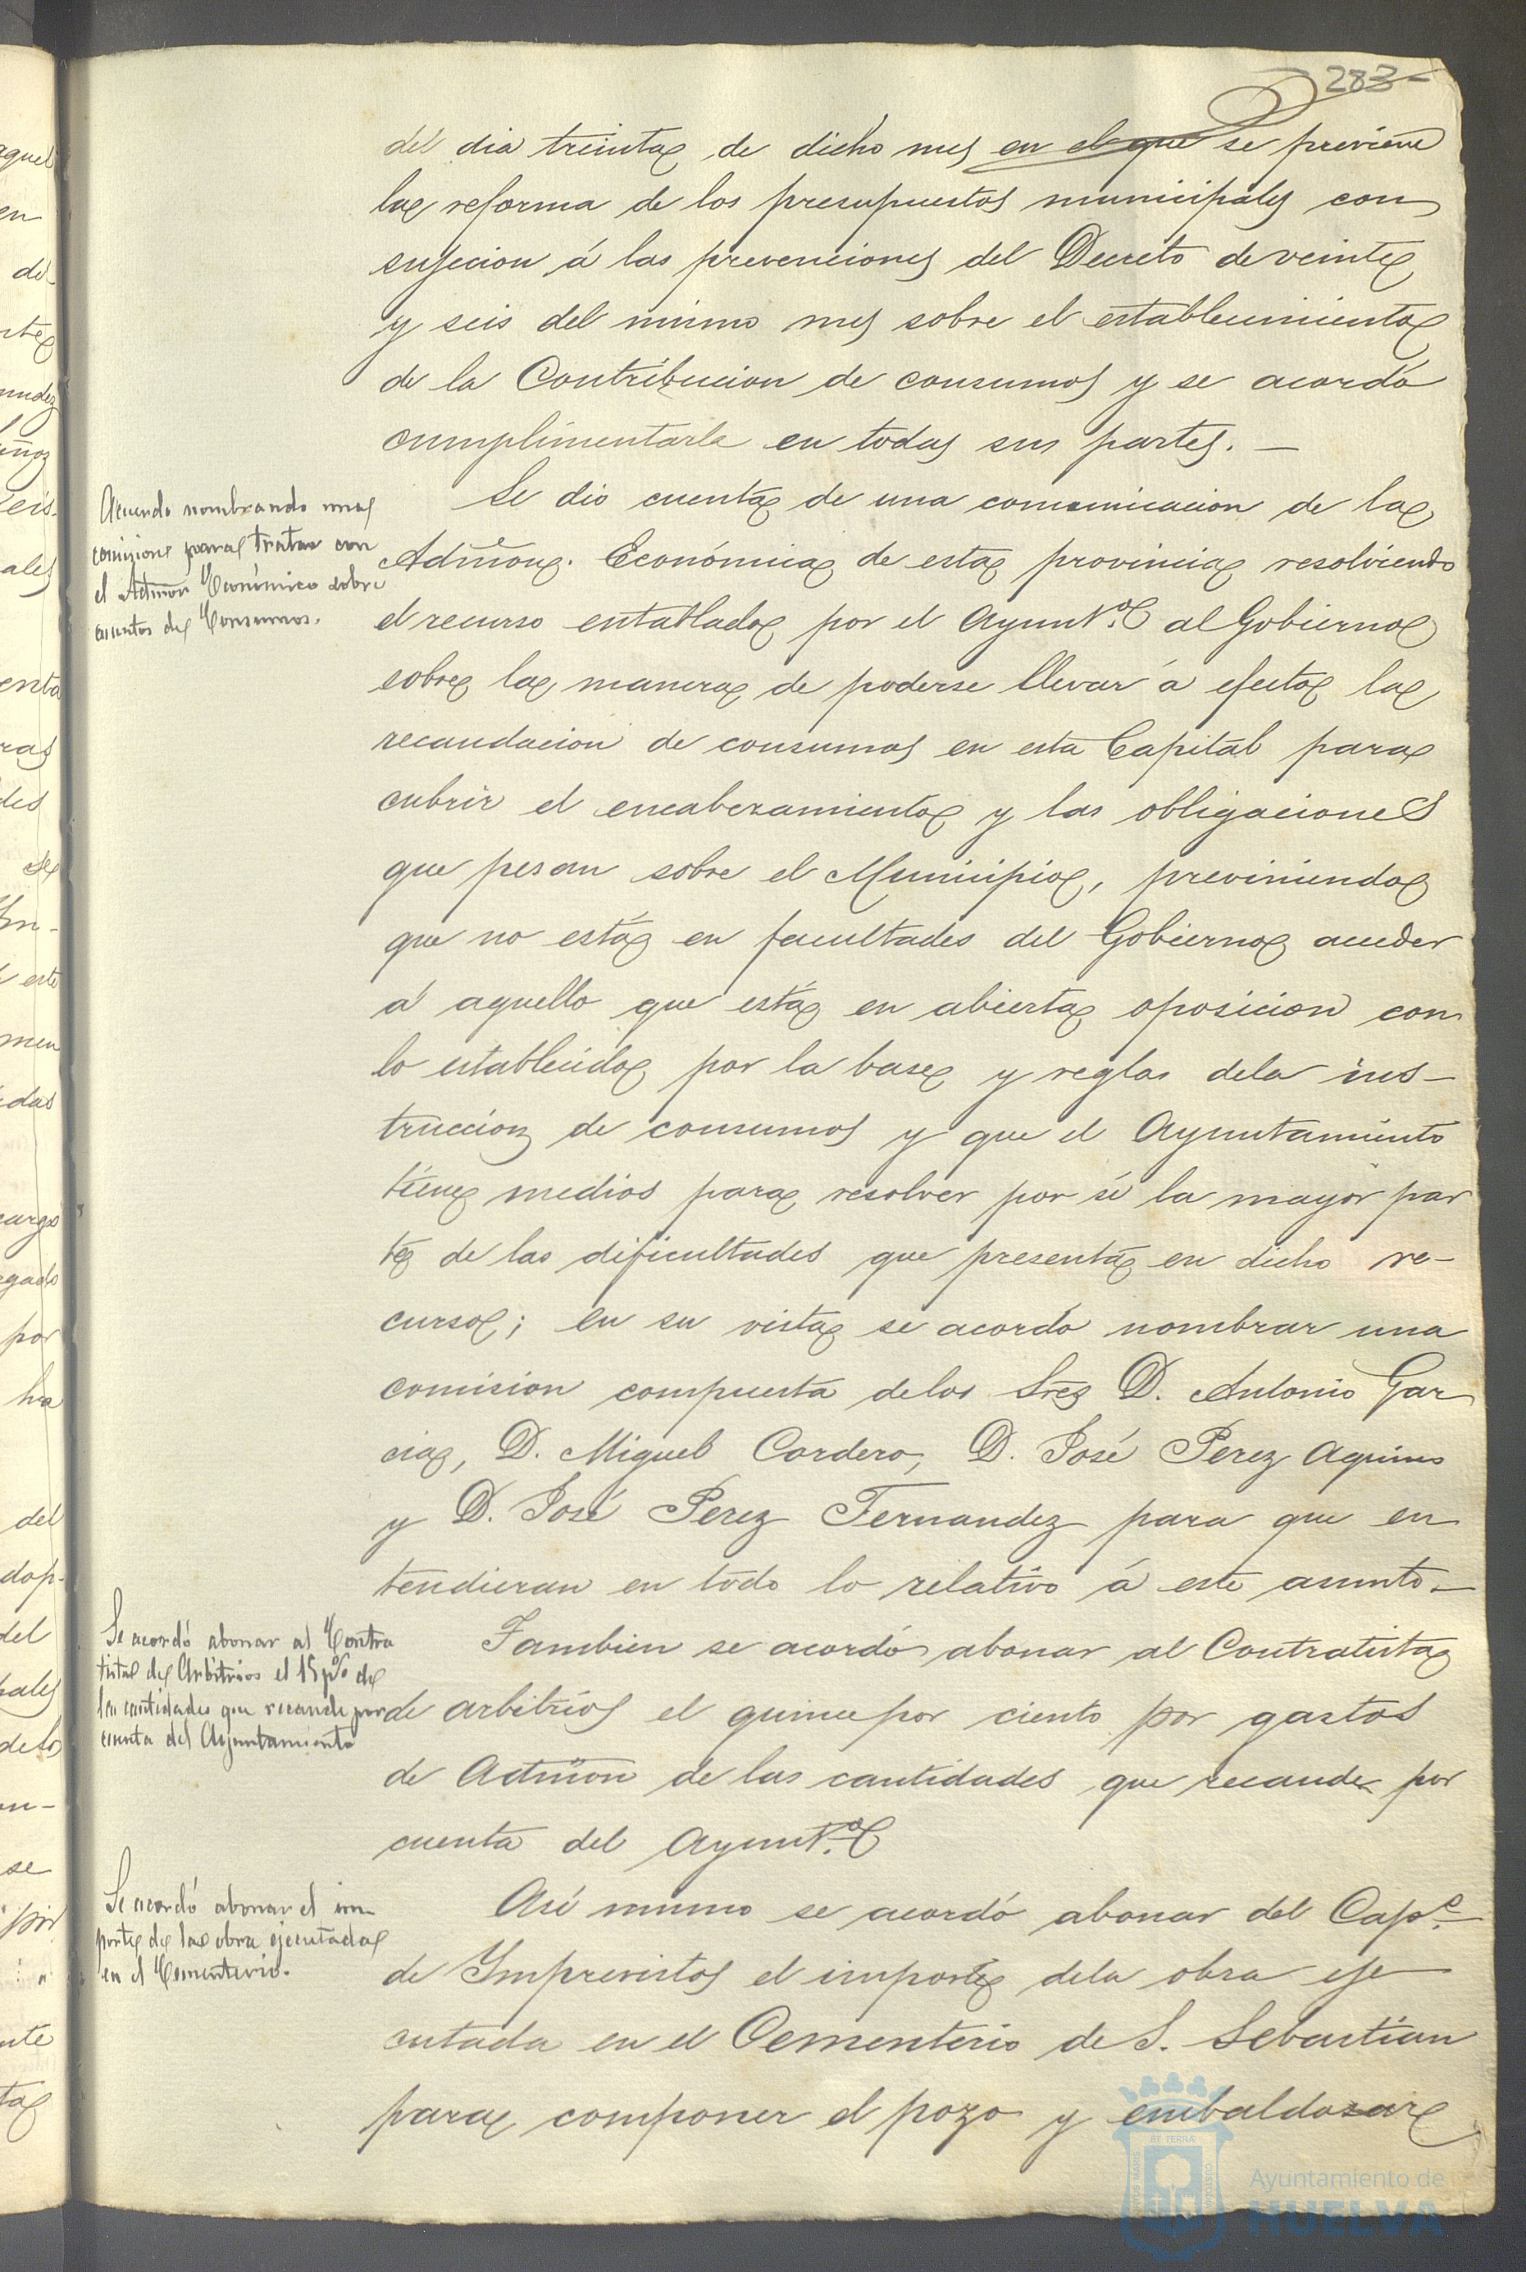 283
del dia treinta de dicho mes en el que se previene
la reforma de los presupuestos municipales con
sujecion á las prevenciones del Decreto de veinte
y seis del mismo mes sobre el establecimiento
de la Contribucion de consumos y se acordó
cumplimentarla en todas sus partes. —
Acuerdo nombrando una
comisione para tratar con
el Admon Económico sobre
asuntos de Consumos.
Se dió cuenta de una comunicacion de la
Admon. Económica de esta provincia resolviendo
el recurso entablado por el Ayunt.º al Gobierno
sobre la manera de poderse llevar á efecto la
recaudacion de consumos en esta Capital para
cubrir el encabezamiento y las obligaciones
que pesan sobre el Municipio, previniendo
que no está en facultades del Gobierno acceder
á aquello que está en abierta oposicion con
lo establecido por la base y reglas dela ins-
truccion de consumos y que el Ayuntamiento
tiene medios para resolver por sí la mayor par
te de las dificultades que presenta en dicho re-
curso; en su vista se acordó nombrar una
comision compuesta delos Sres D. Antonio Gar
cia, D. Miguel Cordero, D. José Perez Aquino
y D. José Perez Fernandez para que en
tendieran en todo lo relativo á este asunto. —
Se acordó abonar al Contra
tista de Arbitrios el 15 p% de
las cantidades que recaude por
cuenta del Ayuntamiento
Tambien se acordó abonar al Contratista
de arbitrios el quince por ciento por gastos
de Admon de las cantidades que recaude por
cuenta del Ayunt.º
Se acordó abonar el im-
porte de la obra ejecutada
en el Cementerio.
Así mismo se acordó abonar del Cap.º
de Imprevistos el importe dela obra eje
cutada en el Cementerio de S. Sebastian
para componer el pozo y embaldosar
Ayuntamiento de
HUELVA